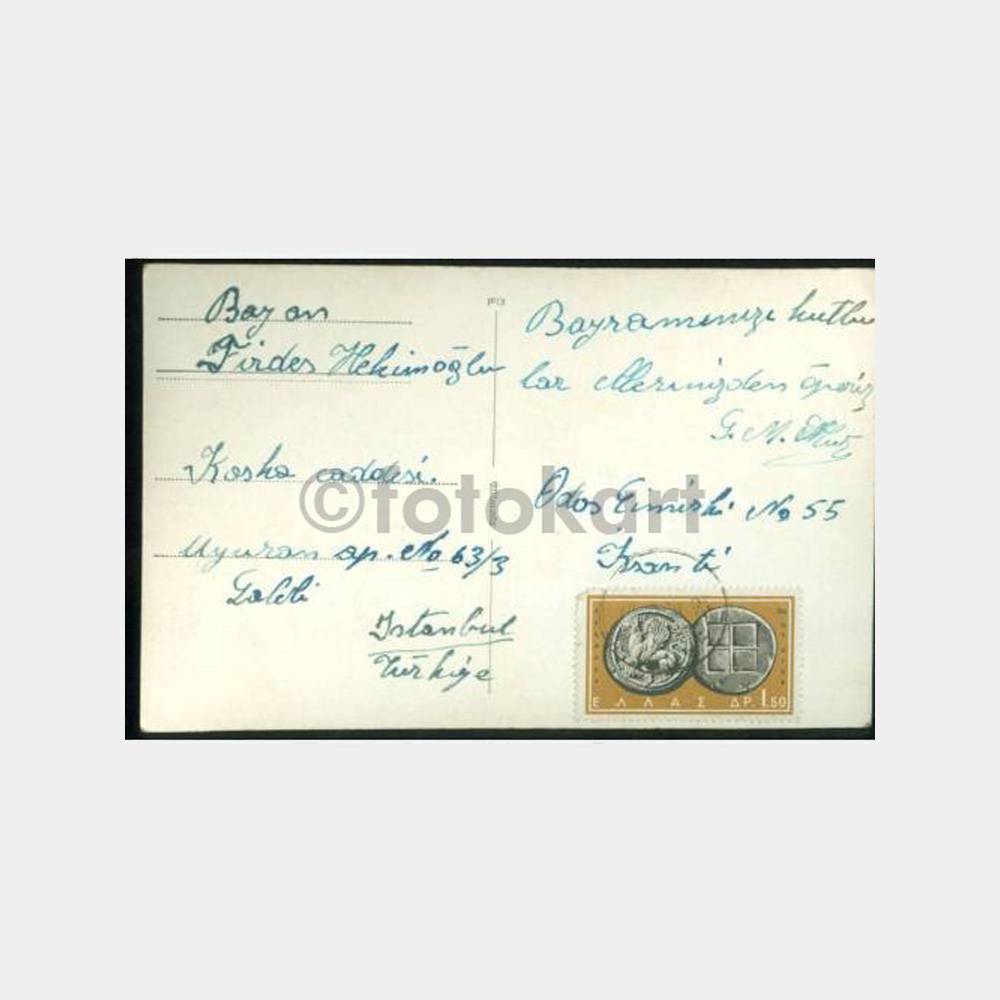 Bayan
Firdes Hekimoğlu
Koska caddesi.
Uyuran ap. No 63/3
Laleli
Istanbul
Türkiye
Bayramınızı kutlu
lar ellerinizden öperiz
G. M.
Odos No 55
İksanti
ΕΛΛΑΣ ΔΡ. 1.50
©fotokart